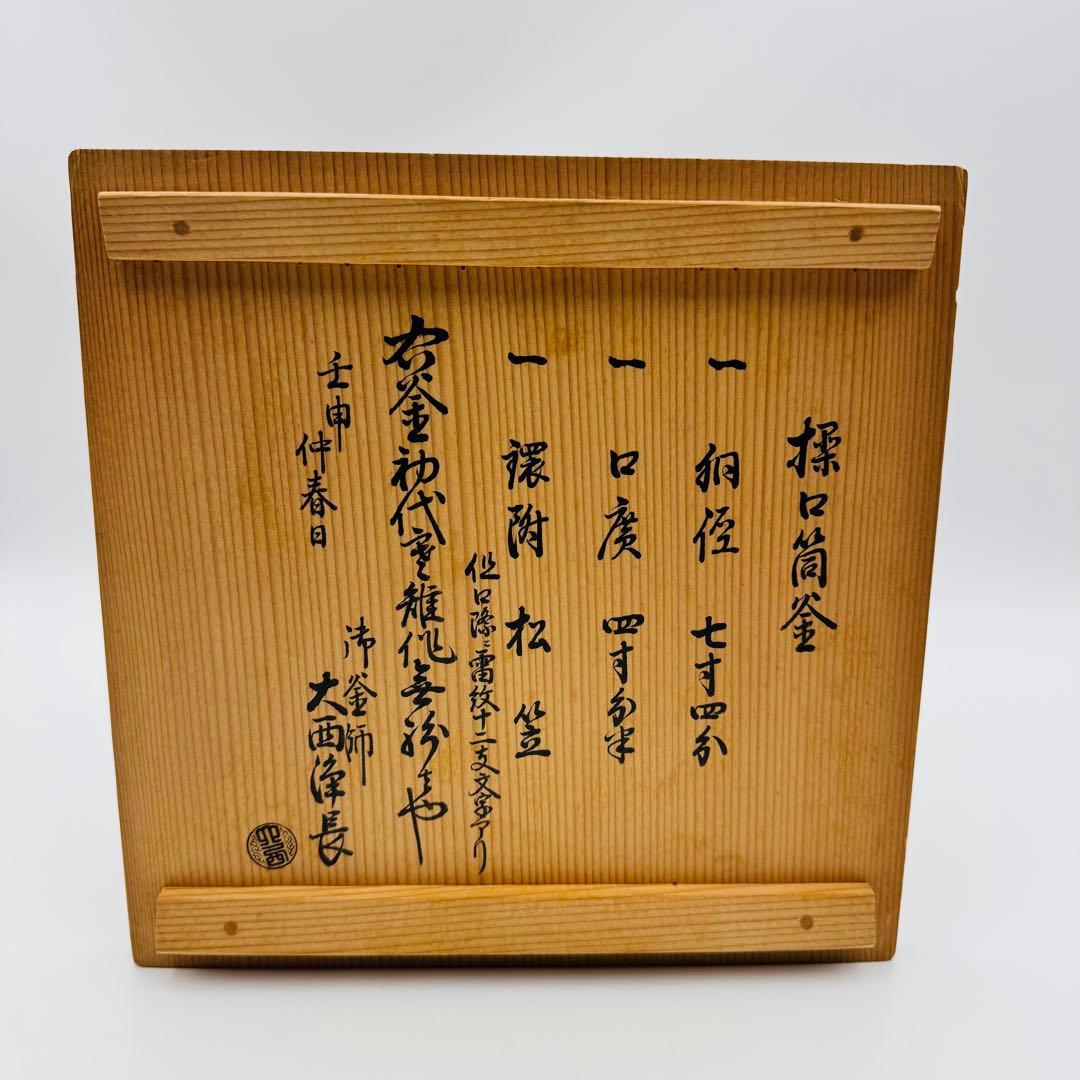 操口筒釜
一 胴径 七寸四分
一 口廣 四寸分半
一 鐶附 松笠
但口際ニ雷紋十二支文字アリ
右釜初代寒雉作無紛者也
壬申 仲春日
御釜師
大西浄長
大西